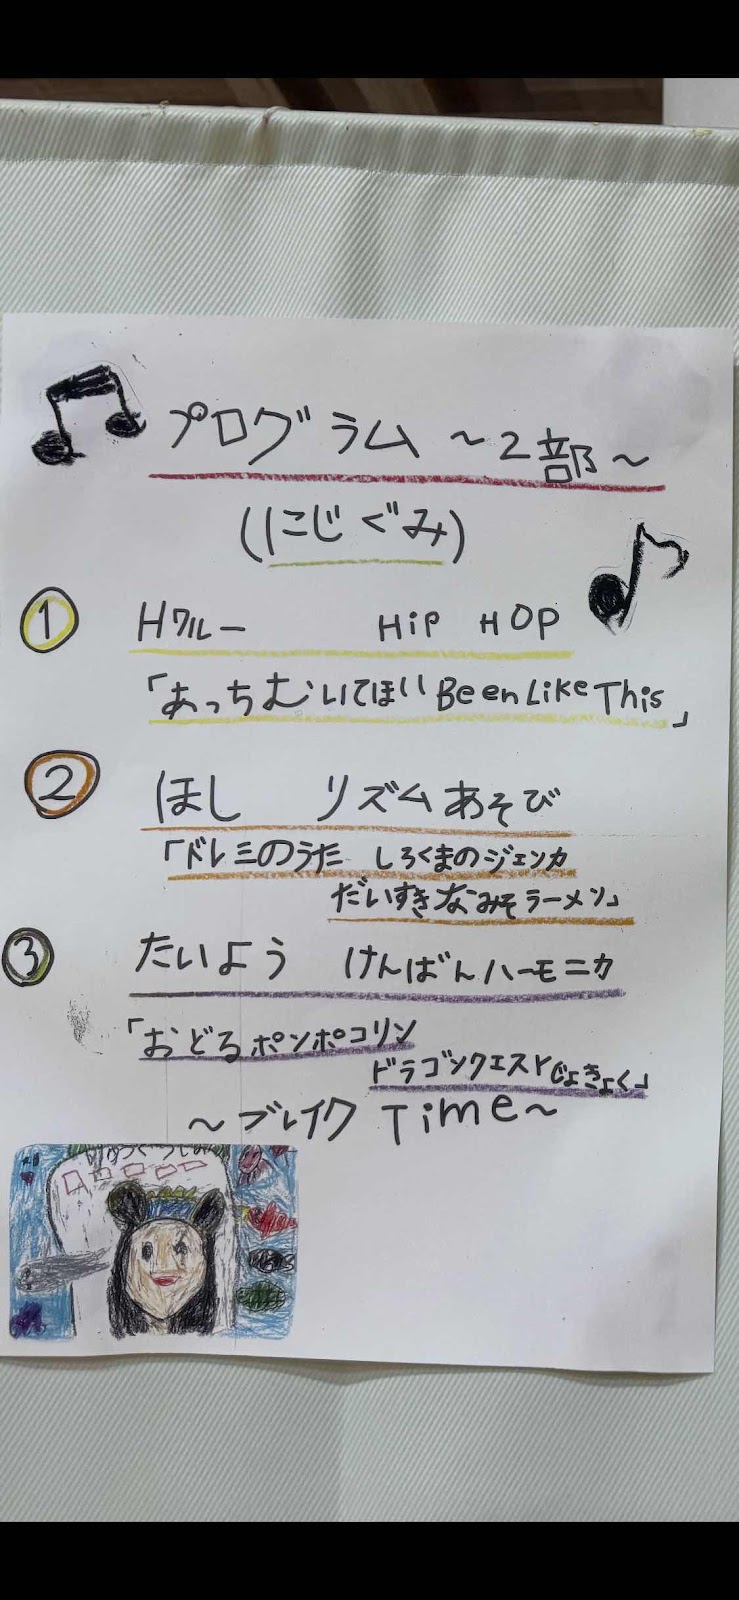 プログラム ～2部～
(にじぐみ)
① Hクルー HiP HOP
「あっちむいてほい Been Like This」
② ほし リズムあそび
「ドレミのうた しろくまのジェンカ
だいすきなみそラーメン」
③ たいよう けんばんハーモニカ
「おどるポンポコリン
ドラゴンクエストじょきょく」
～ブレイク Time～